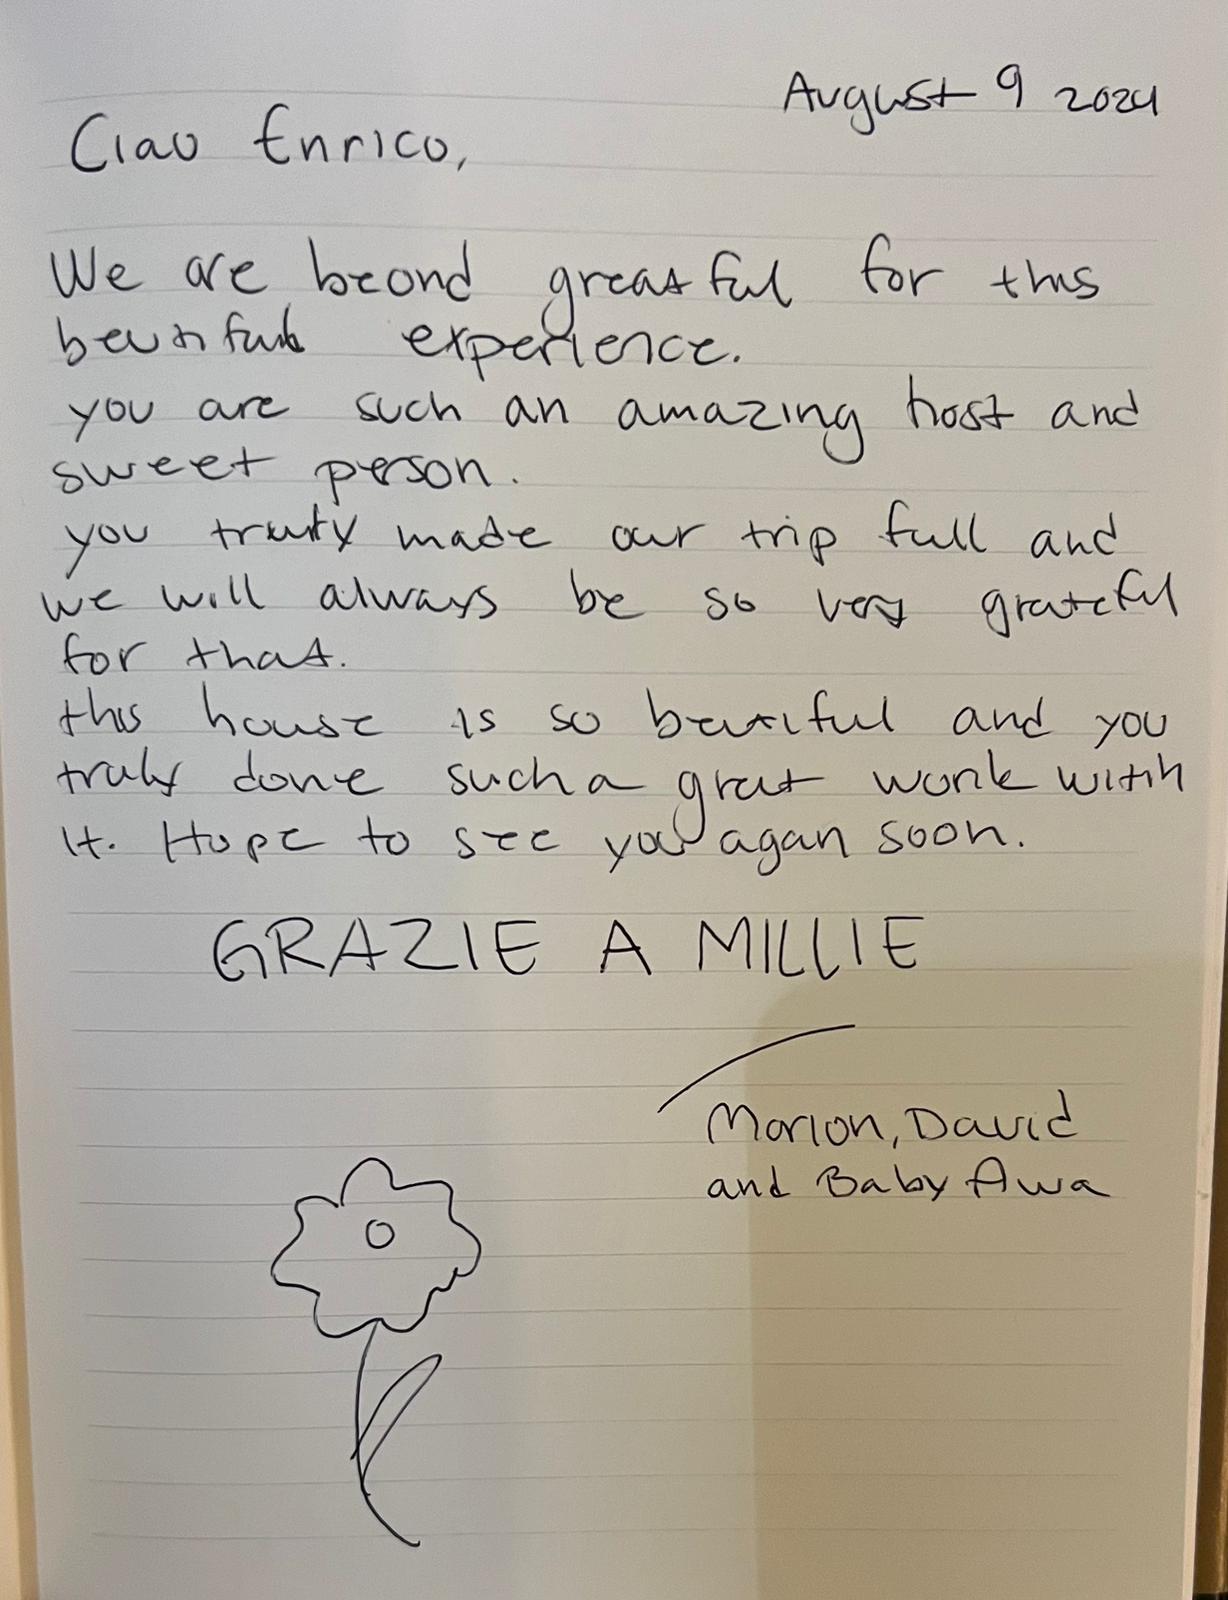 August 9 2024
Ciao Enrico,
We are beond greatful for this
beutiful experience.
you are such an amazing host and
sweet person.
you truly made our trip full and
we will always be so very grateful
for that.
this house is so beutiful and you
truly done such a great work with
it. Hope to see you agan soon.
GRAZIE A MILLIE
Marion, David
and Baby Awa